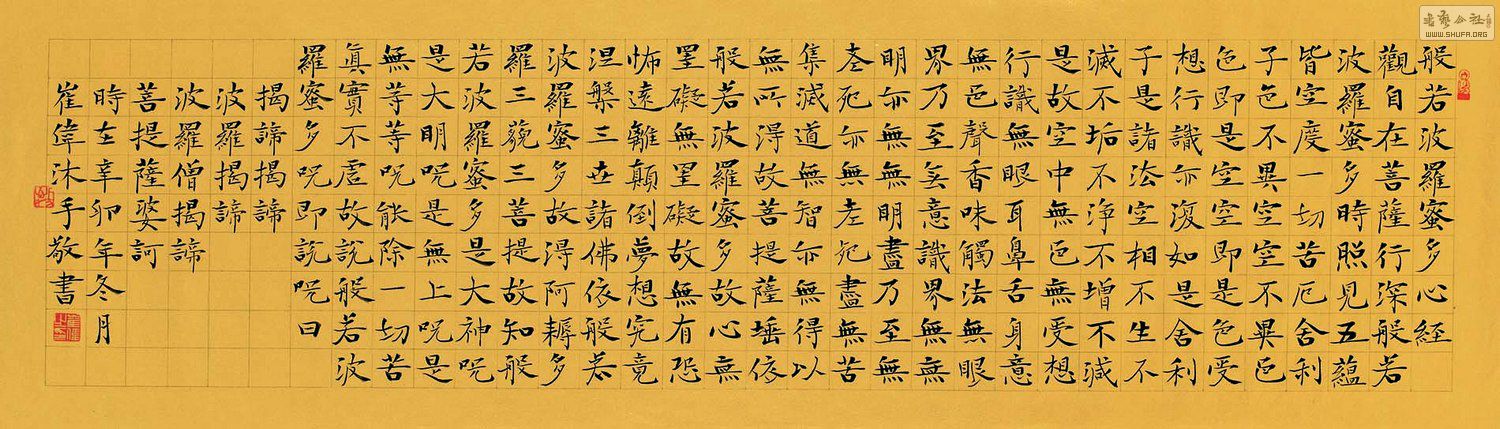 般若波羅蜜多心經
觀自在菩薩行深般若
波羅蜜多時照見五蘊
皆空度一切苦厄舍利
子色不異空空不異色
色即是空空即是色受
想行識亦復如是舍利
子是諸法空相不生不
滅不垢不淨不增不減
是故空中無色無受想
行識無眼耳鼻舌身意
無色聲香味觸法無眼
界乃至無意識界無無
明亦無無明盡乃至無
老死亦無老死盡無苦
集滅道無智亦無得以
無所得故菩提薩埵依
般若波羅蜜多故心無
罣礙無罣礙故無有恐
怖遠離顛倒夢想究竟
涅槃三世諸佛依般若
波羅蜜多故得阿耨多
羅三藐三菩提故知般
若波羅蜜多是大神咒
是大明咒是無上咒是
無等等咒能除一切苦
真實不虛故說般若波
羅蜜多咒即說咒曰
揭諦揭諦
波羅揭諦
波羅僧揭諦
菩提薩婆訶
時在辛卯年冬月
崔偉沐手敬書
WWW.SHUFA.ORG